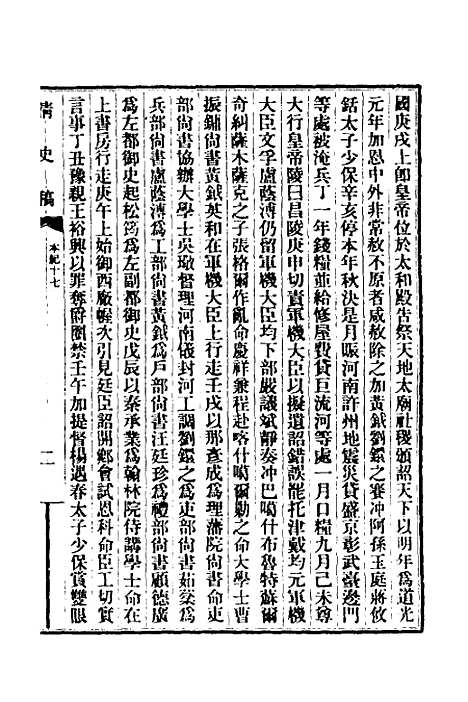 國庚戌上卽皇帝位於太和殿告祭天地太廟社稷頒詔天下以明年爲道光
元年加恩中外非常赦不原者咸赦除之加黃鉞劉鐶之賽冲阿孫玉庭蔣攸
銛太子少保辛亥停本年秋決是月賑河南許州地震災貸盛京彰武臺邊門
等處被淹兵丁一年錢糧並給修屋費貸巨流河等處一月口糧九月己未尊
大行皇帝陵曰昌陵庚申切責軍機大臣以擬遺詔錯誤罷托津戴均元軍機
大臣文孚盧蔭溥仍留軍機大臣均下部嚴議斌靜奏冲巴噶什布魯特蘇爾
奇糾薩木薩克之子張格爾作亂命慶祥兼程赴喀什噶爾勦之命大學士曹
振鏞尙書黃鉞英和在軍機大臣上行走壬戌以那彥成爲理藩院尙書命吏
部尙書協辦大學士吳璥督理河南儀封河工調劉鐶之爲吏部尙書茹棻爲
兵部尙書盧蔭溥爲工部尙書黃鉞爲戶部尙書汪廷珍爲禮部尙書顧德慶
爲左都御史起松筠爲左副都御史戊辰以秦承業爲翰林院侍講學士命在
上書房行走庚午上始御西廠幄次引見廷臣詔開鄉會試恩科命臣工切實
言事丁丑豫親王裕興以罪奪爵圈禁壬午加提督楊遇春太子少保賞雙眼
淸史稿
本紀十七
二